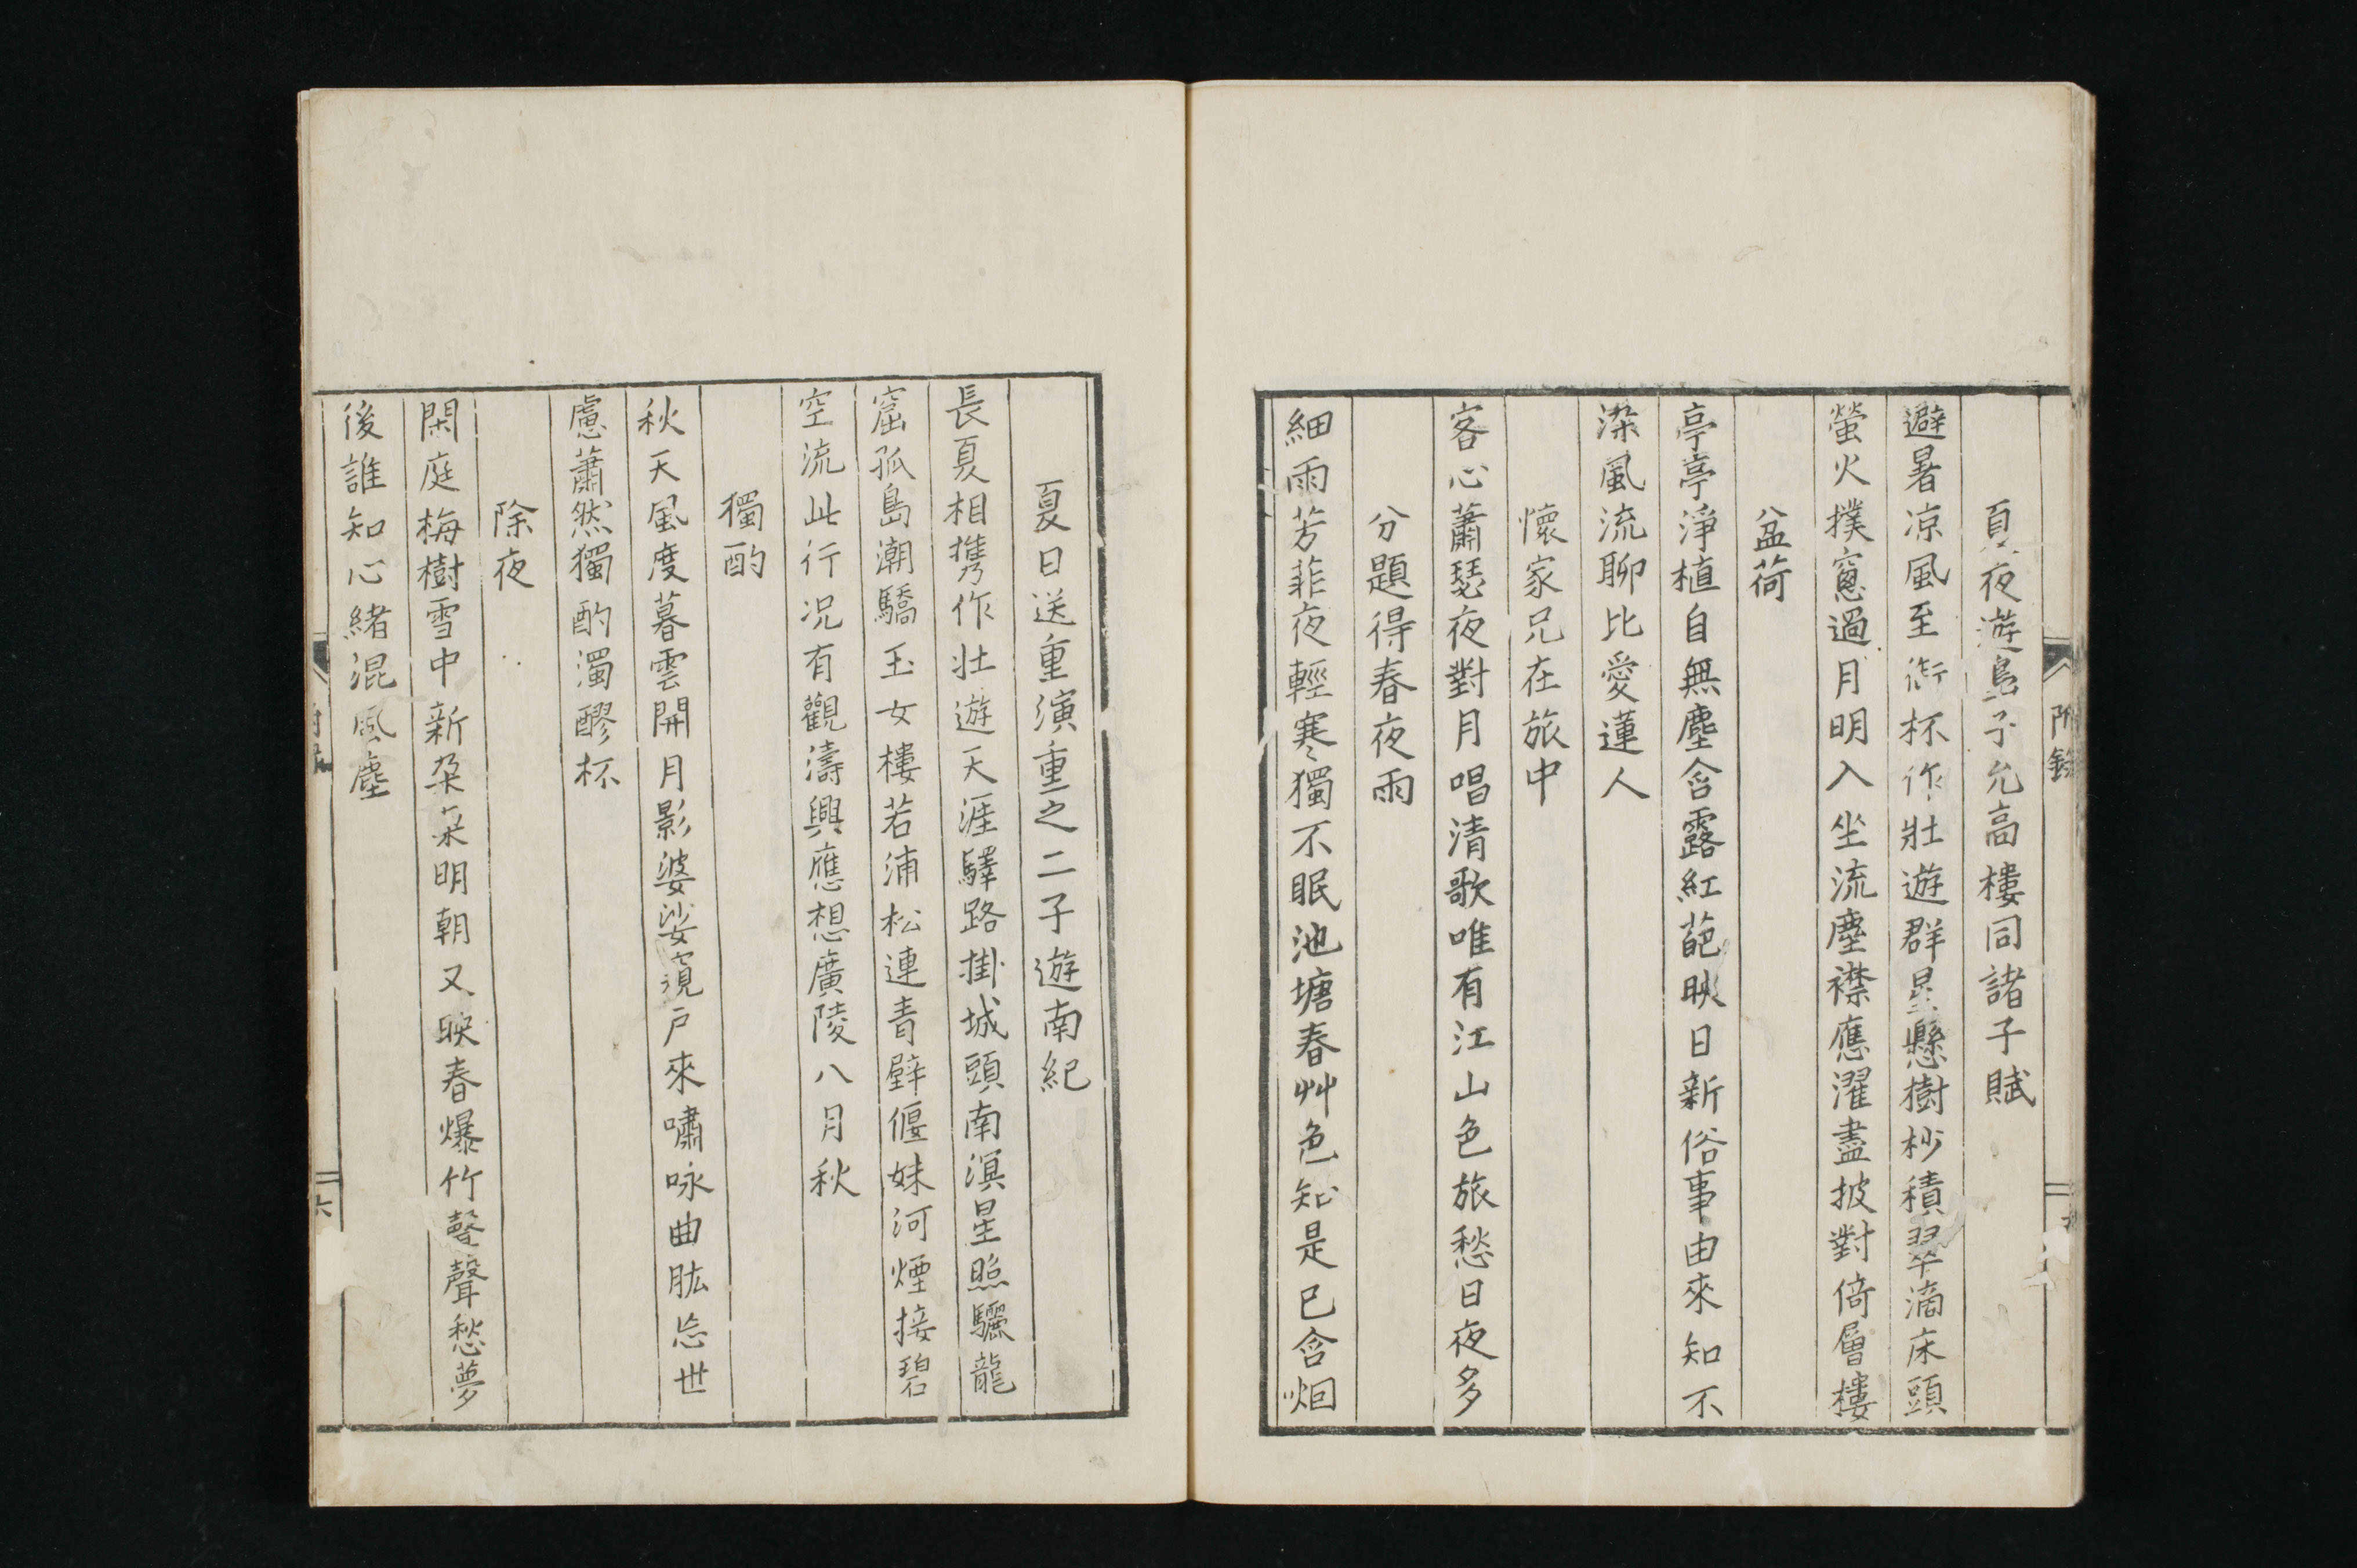 夏夜遊島子允高樓同諸子賦
避暑凉風至銜杯作壯遊群星懸樹杪積翠滴床頭
螢火撲窻過月明入坐流塵襟應濯盡披對倚層樓
盆荷
亭亭淨植自無塵含露紅葩映日新俗事由來知不
染風流聊比愛蓮人
懷家兄在旅中
客心蕭瑟夜對月唱清歌唯有江山色旅愁日夜多
分題得春夜雨
細雨芳菲夜輕寒獨不眠池塘春艸色知是已含烟
附錄
夏日送重演重之二子遊南紀
長夏相携作壯遊天涯驛路掛城頭南溟星照驪龍
窟孤島潮驕玉女樓若浦松連青壁偃妹河煙接碧
空流此行况有觀濤興應想廣陵八月秋
獨酌
秋天風度暮雲開月影婆娑窺戶來嘯咏曲肱忘世
慮蕭然獨酌濁醪杯
除夜
閑庭梅樹雪中新朶朶明朝又映春爆竹聲聲愁夢
後誰知心緒混風塵
六